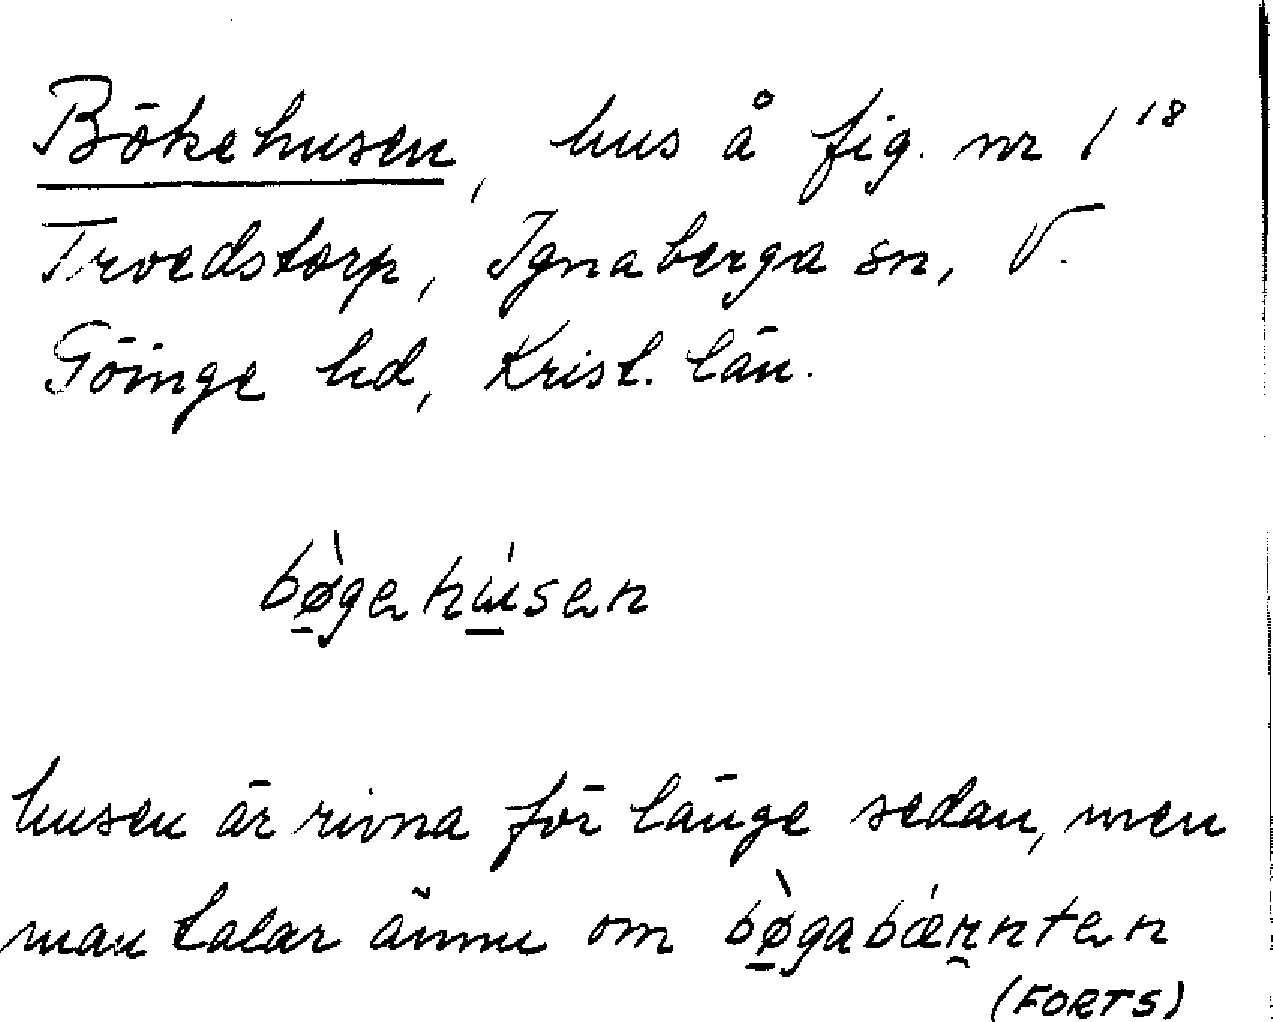 Bökehusen, hus å fig. nr 1¹⁸
Troedstorp, Ignaberga sn, V.
Göinge hd, Krist. län.
bø̱̀gehú̱sen
husen är rivna för länge sedan, men
man talar ännu om bø̱̀gabǽn̰nten
(FORTS)